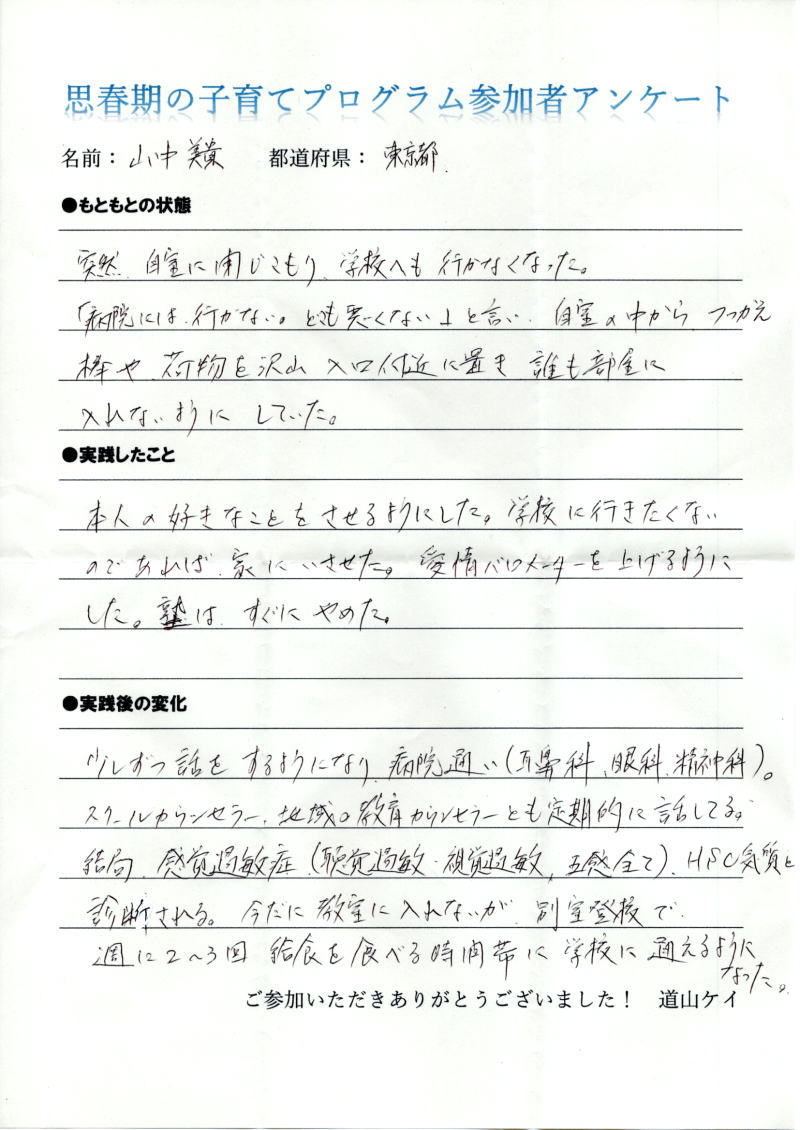 思春期の子育てプログラム参加者アンケート
名前：山中 美貴　都道府県：東京都
●もともとの状態
突然、自室に閉じこもり、学校へも行かなくなった。
「病院には、行かない。どこも悪くない」と言い、自室の中から、つっかえ
棒や、荷物を沢山 入口付近に置き 誰も部屋に
入れないようにしていた。
●実践したこと
本人の好きなことをさせるようにした。学校に行きたくない
のであれば、家にいさせた。愛情バロメーターを上げるように
した。塾は、すぐにやめた。
●実践後の変化
少しずつ話をするようになり、病院通い(耳鼻科、眼科、精神科)。
スクールカウンセラー、地域の教育カウンセラーとも定期的に話してる。
結局、感覚過敏症(聴覚過敏・視覚過敏、五感全て)、HSC気質と
診断される。今だに教室に入れないが、別室登校で、
週に2〜3回 給食を食べる時間帯に学校に通えるように
なった。
ご参加いただきありがとうございました！　道山ケイ